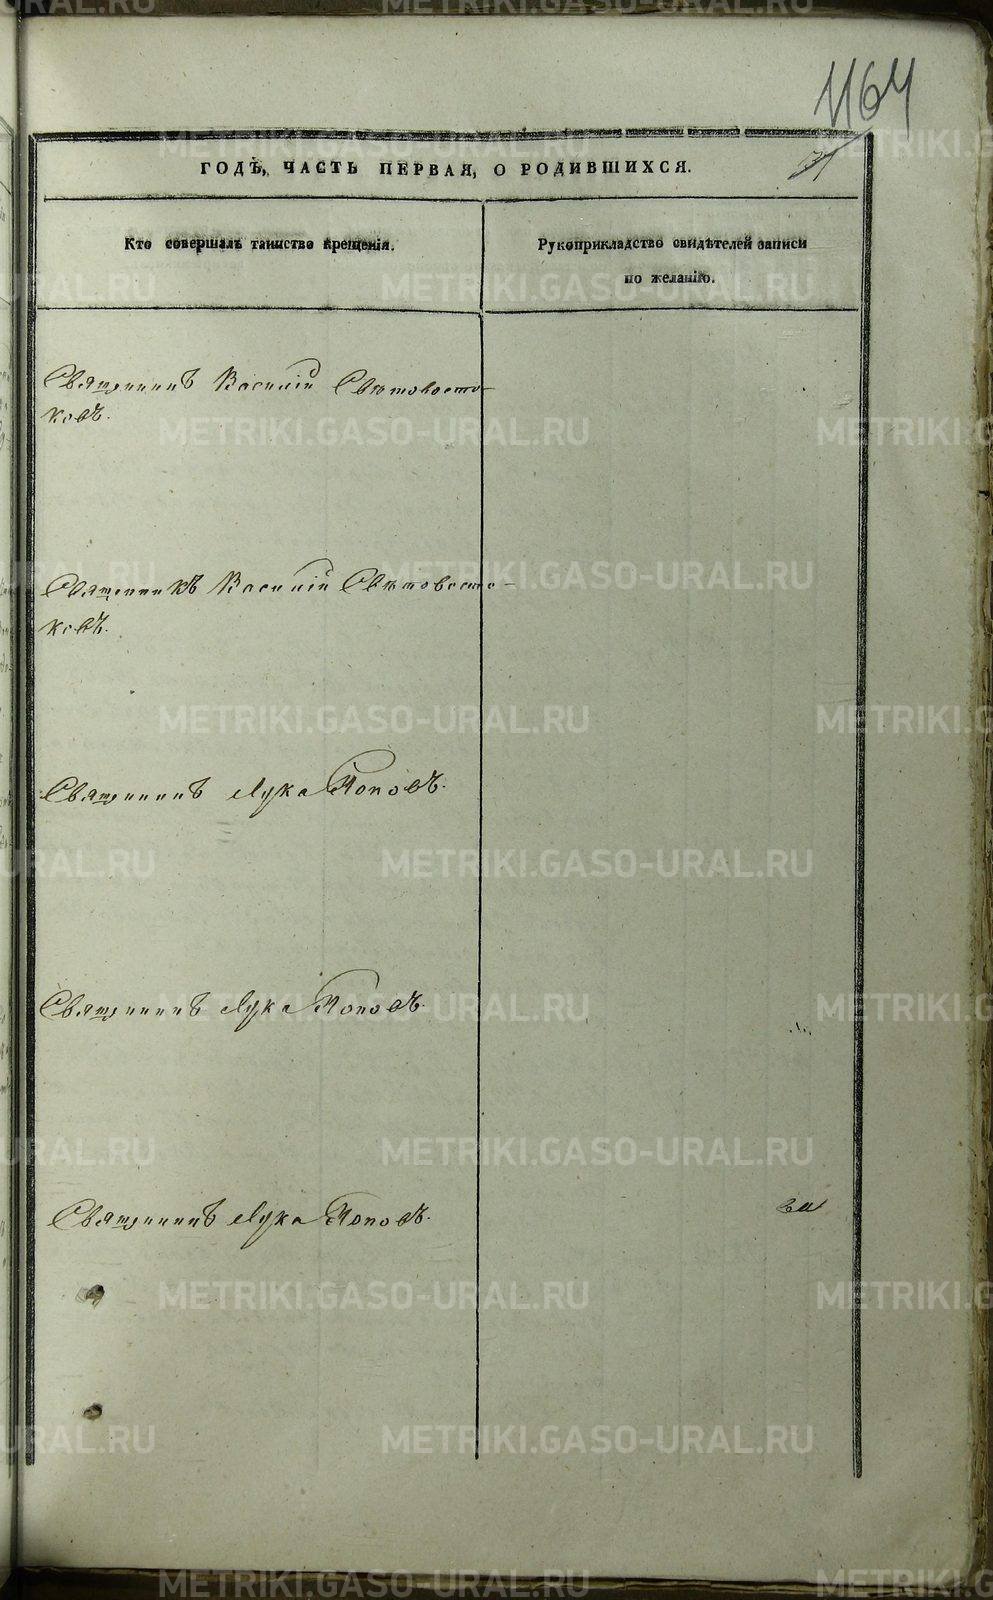 1164
ГОДЪ, ЧАСТЬ ПЕРВАЯ, О РОДИВШИХСЯ.
Кто совершалъ таинство крещенія.
Рукоприкладство свидѣтелей записи
по желанію.
Священникъ Василій Свѣтовосто-
ковъ.
Священникъ Василій Свѣтовосто-
ковъ.
Священникъ Лука Поповъ.
Священникъ Лука Поповъ.
Священникъ Лука Поповъ.
METRIKI.GASO-URAL.RU